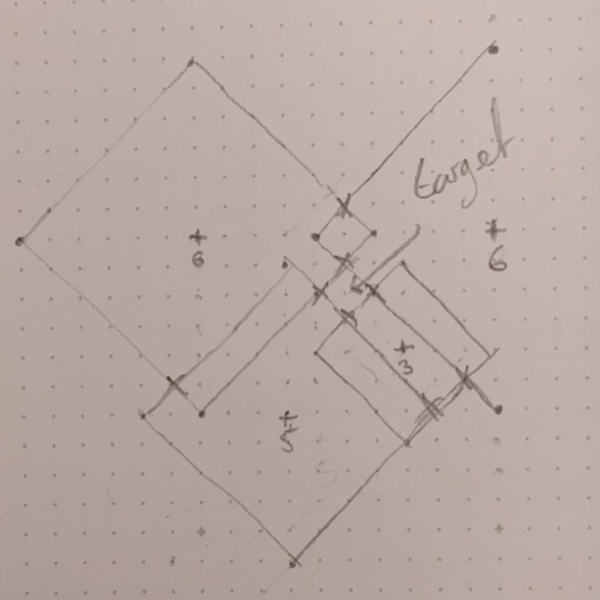 target
6
6
3
5
5